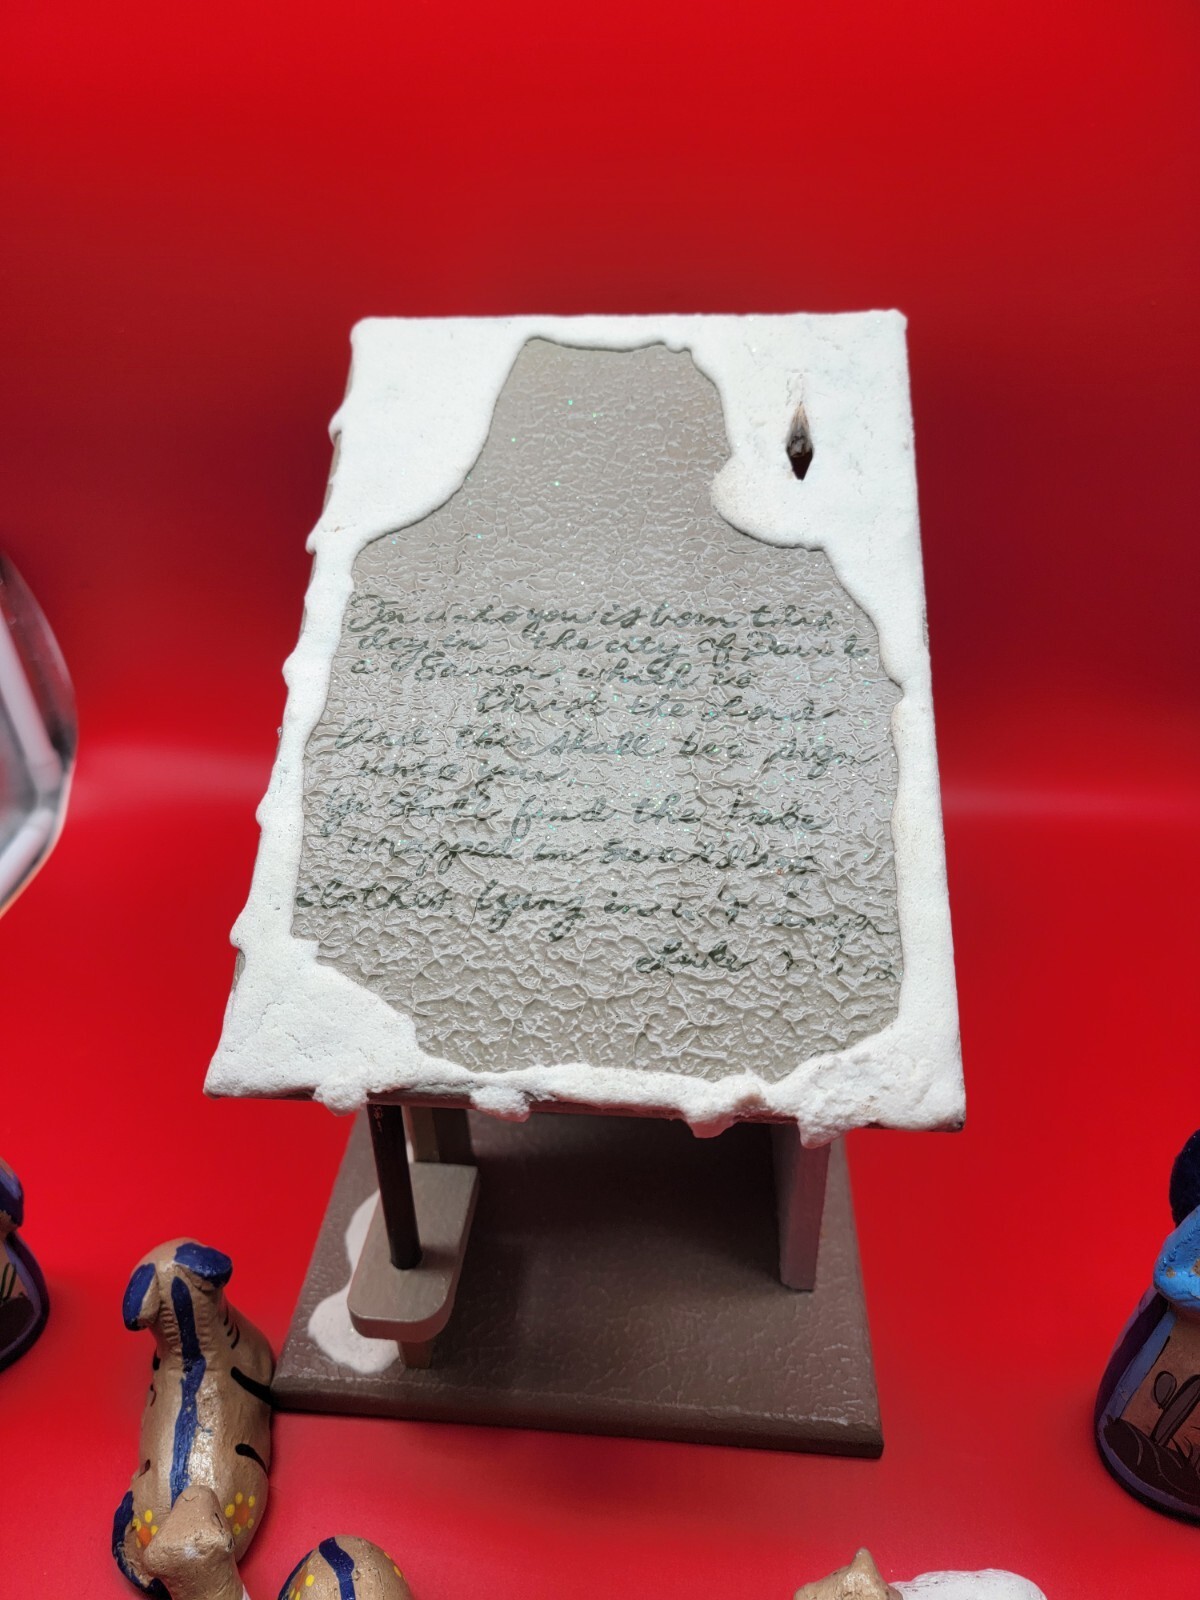 For unto you is born this
day in the city of David
a Savior, which is
Christ the Lord
And this shall be a sign
unto you,
ye shall find the babe
wrapped in swaddling
clothes lying in a manger
Luke